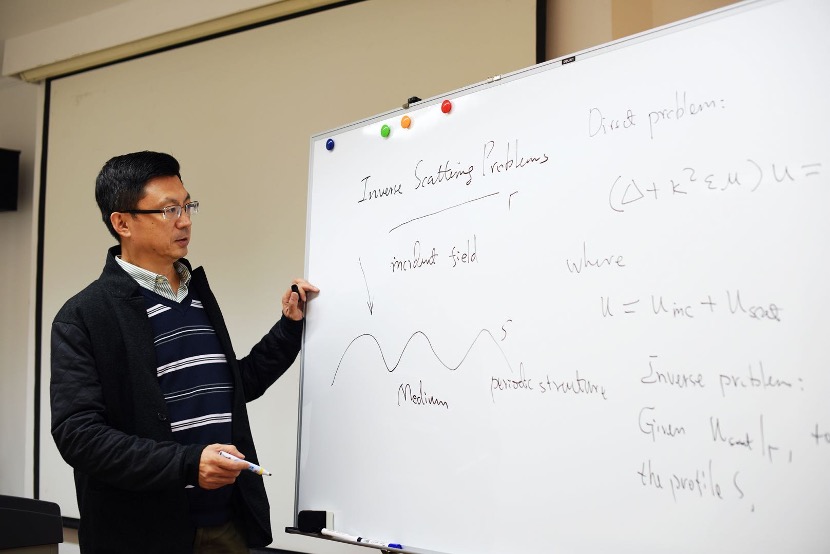 Inverse Scattering Problems
Γ
incident field
S
Medium
periodic structure
Direct problem:
(Δ + k² ε μ) u =
where
u = u_inc + u_scat
Inverse problem:
Given u_scat|_Γ, to
the profile S.